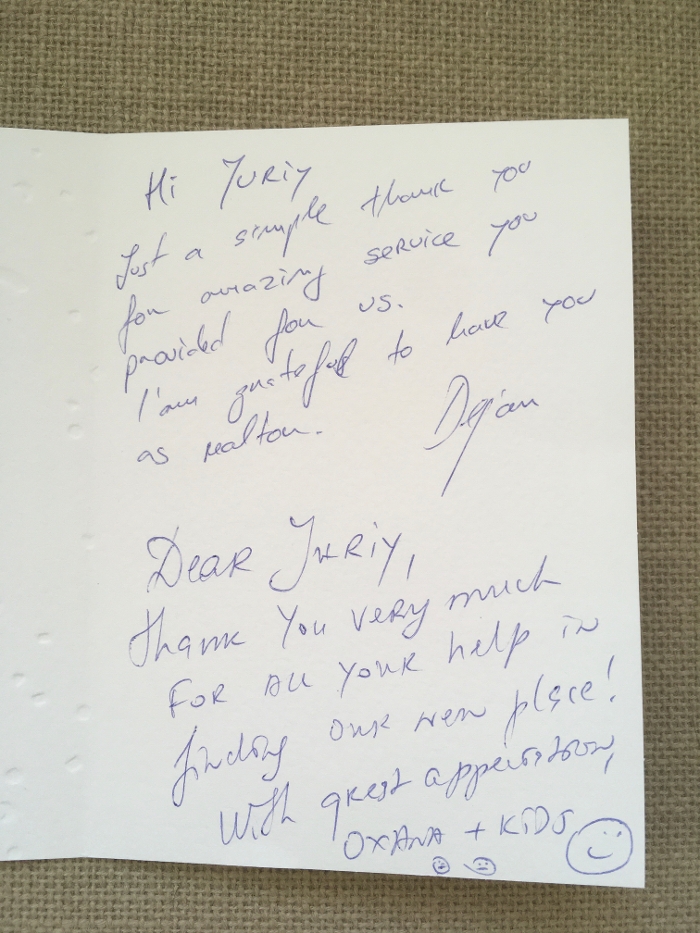 Hi Yuriy
Just a simple thank you
for amazing service you
provided for us.
I'am grateful to have you
as realtor.
Dejan
Dear Yuriy,
Thank You very much
For All your help in
finding our new place!
With great appreciation,
OXANA + KiDS